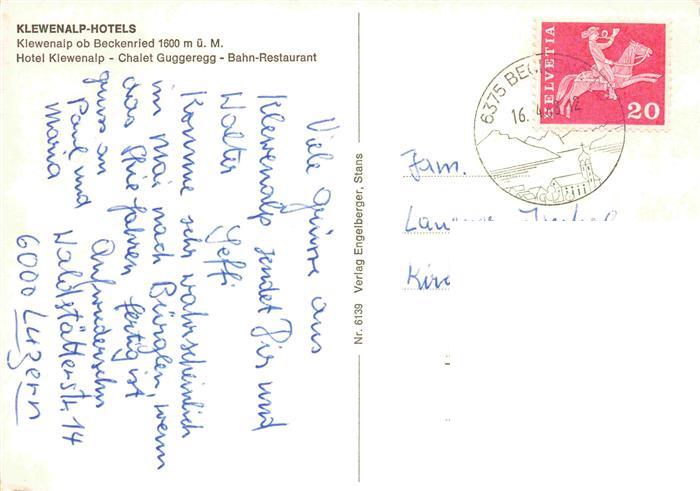 KLEWENALP-HOTELS
Klewenalp ob Beckenried 1600 m ü. M.
Hotel Klewenalp - Chalet Guggeregg - Bahn-Restaurant
Viele Grüsse aus
Klewenalp sendet Dir und
Walter Seffi
Komme sehr wahrscheinlich
im Mai nach Bürglen, wenn
das Skie fahren fertig ist
gruss an Aufwiedersehn
Paul und Waldstätterstr. 14
Maria 6000 Luzern
Nr. 6139 Verlag Engelberger, Stans
HELVETIA
20
6375 BEC
16. 4
2
Fam.